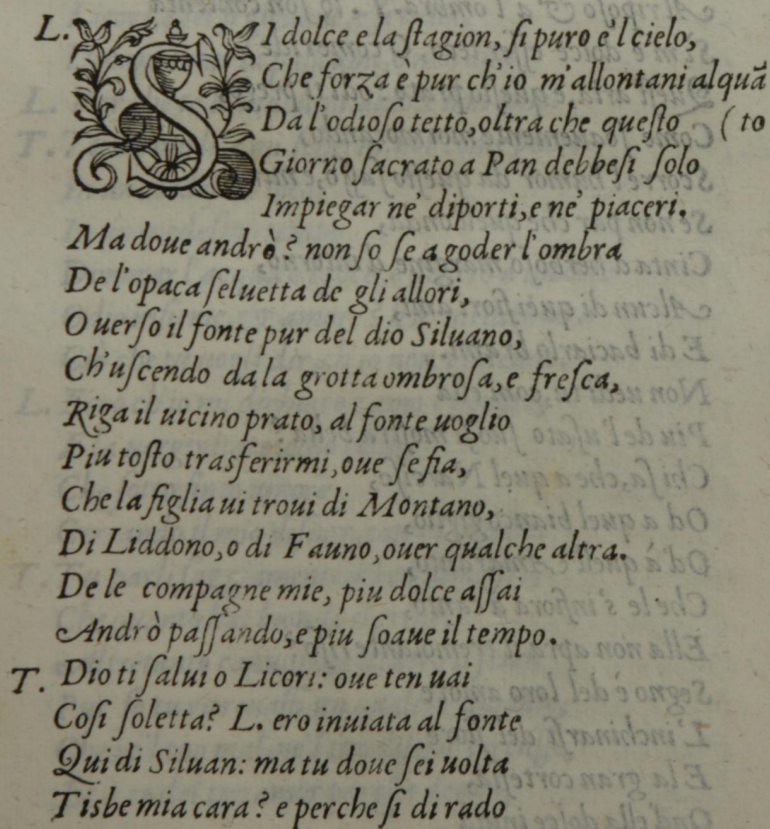 L. SI dolce e la ſtagion, ſi puro e'l cielo,
Che forza è pur ch'io m'allontani alquã
Da l'odioſo tetto, oltra che queſto (to
Giorno ſacrato a Pan debbeſi ſolo
Impiegar ne' diporti, e ne' piaceri.
Ma doue andrò? non ſo ſe a goder l'ombra
De l'opaca ſeluetta de gli allori,
O uerſo il fonte pur del dio Siluano,
Ch'uſcendo da la grotta ombroſa, e freſca,
Riga il uicino prato, al fonte uoglio
Piu toſto trasferirmi, oue ſe fia,
Che la figlia ui troui di Montano,
Di Liddono, o di Fauno, ouer qualche altra.
De le compagne mie, piu dolce aſſai
Andrò paſſando, e piu ſoaue il tempo.
T. Dio ti ſalui o Licori: oue ten uai
Coſi ſoletta? L. ero inuiata al fonte
Qui di Siluan: ma tu doue ſei uolta
Tisbe mia cara? e perche ſi di rado